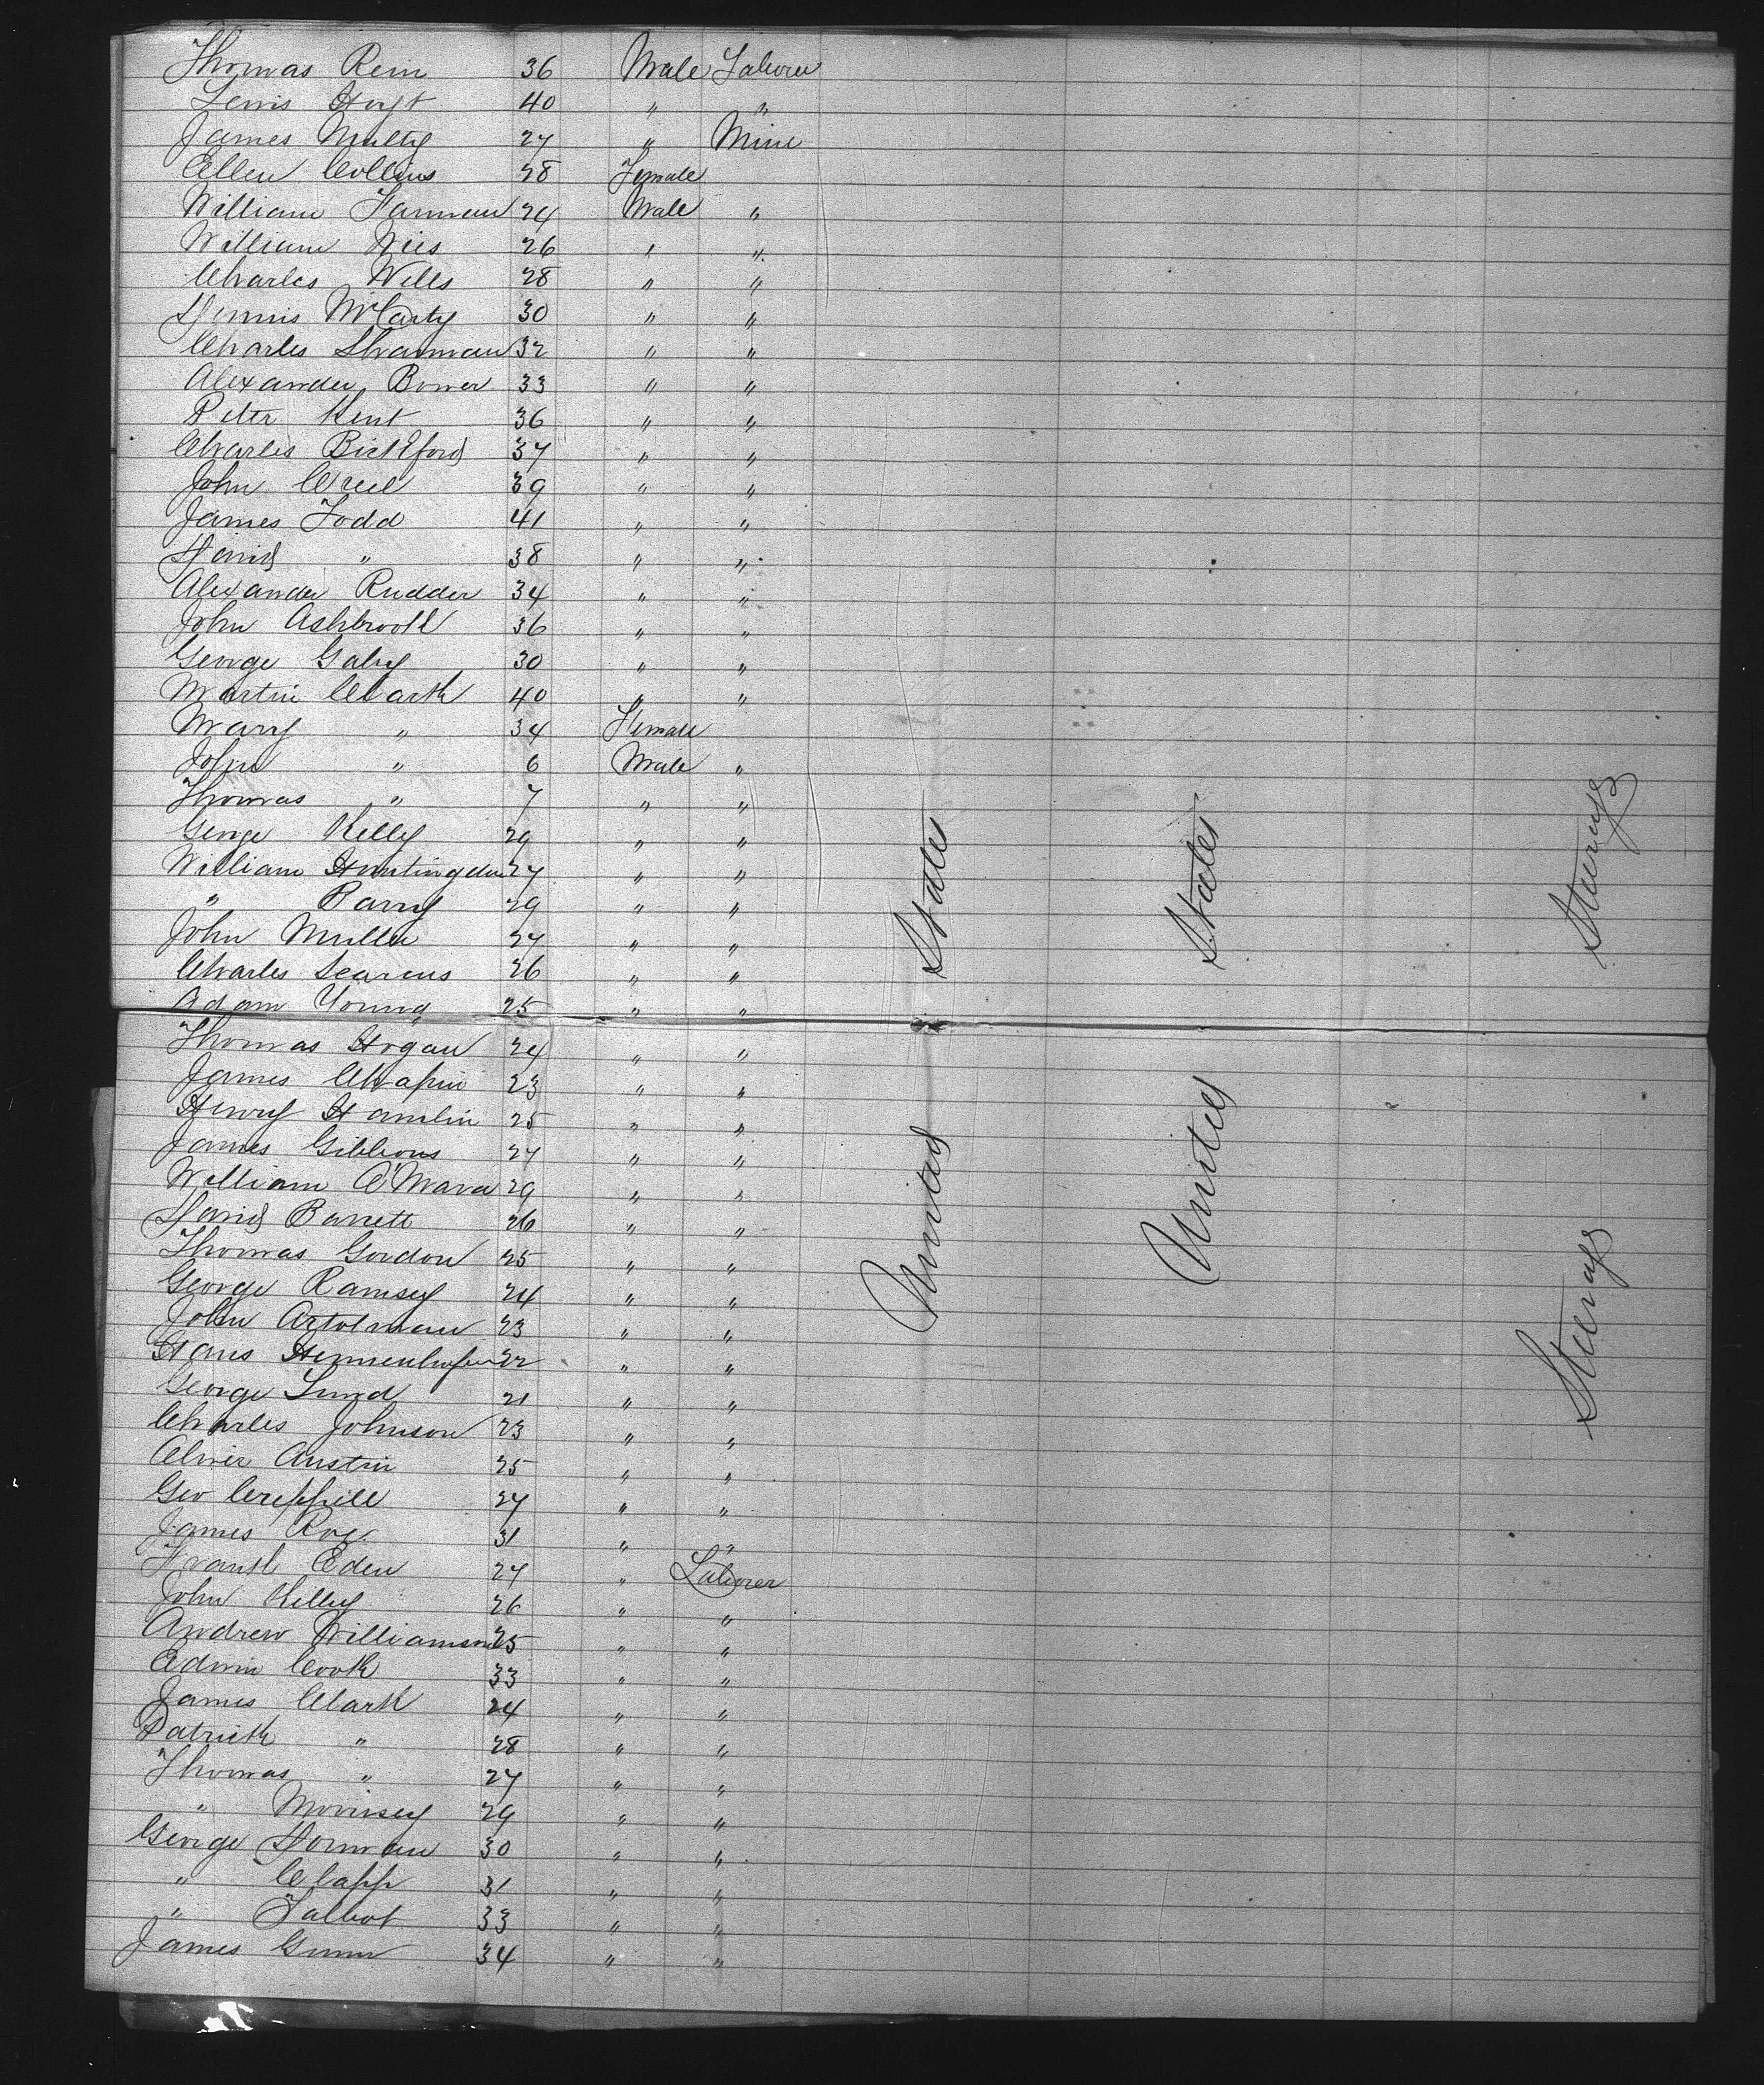 Thomas Rein 36 Male Laborer
Lewis Hoyt 40 " "
James Multy 27 " Mine
Ellen Collins 28 Female
William Farman 24 Male "
William Nies 26 " "
Charles Wells 28 " "
Dennis McCarty 30 " "
Charles Sharman 32 " "
Alexander Bower 33 " "
Peter Kent 36 " "
Charles Bickford 37 " "
John Creel 39 " "
James Todd 41 " "
David " 38 " "
Alexander Rudder 34 " "
John Ashbrook 36 " "
George Galry 30 " "
Martin Clark 40 " "
Mary " 34 Female
John " 6 Male "
Thomas " 7 " "
George Kelly 29 " "
William Huntingdon 27 " "
" Barry 29 " "
John Muller 27 " "
Charles Searens 26 " "
Adam Young 25 " "
Thomas Hogan 24 " "
James Chapin 23 " "
Henry Hamlin 25 " "
James Gibbons 27 " "
William O'Mara 29 " "
David Barrett 26 " "
Thomas Gordon 25 " "
George Ramsey 24 " "
John Artolman 23 " "
Hans 22 " "
George Lund 21 " "
Charles Johnson 23 " "
Oliver Austin 25 " "
Geo Creppill 27 " "
James Roy 31 " "
Frank Eden 27 " Laborer
John Kelly 26 " "
Andrew Williamson 25 " "
Edwin Cook 33 " "
James Clark 24 " "
Patrick " 28 " "
Thomas " 27 " "
" Morrisey 29 " "
George Dorman 30 " "
" Clapp 31 " "
" Talbot 33 " "
James Gunn 34 " "
United States
United States
Steerage
Steerage